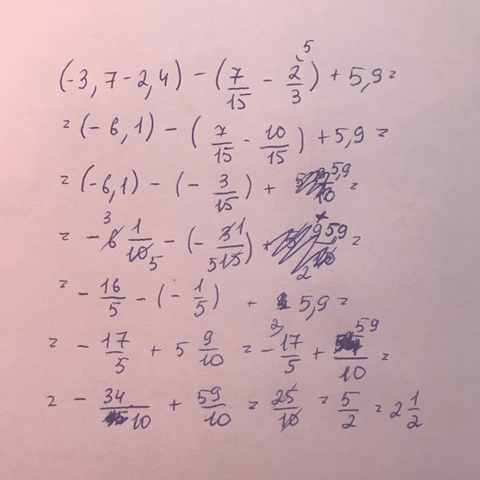 (-3,7-2,4) - (7/15 - 2/3 ⁵) + 5,9 =
= (-6,1) - (7/15 - 10/15) + 5,9 =
= (-6,1) - (- 3/15) + 5,9 =
= - 6 3 1/10 5 - (- 3 1/5 15) + 5,9 =
= - 16/5 - (- 1/5) + 5,9 =
= - 17/5 + 5 9/10 = - 17/5 ² + 59/10 =
= - 34/10 + 59/10 = 25/10 = 5/2 = 2 1/2